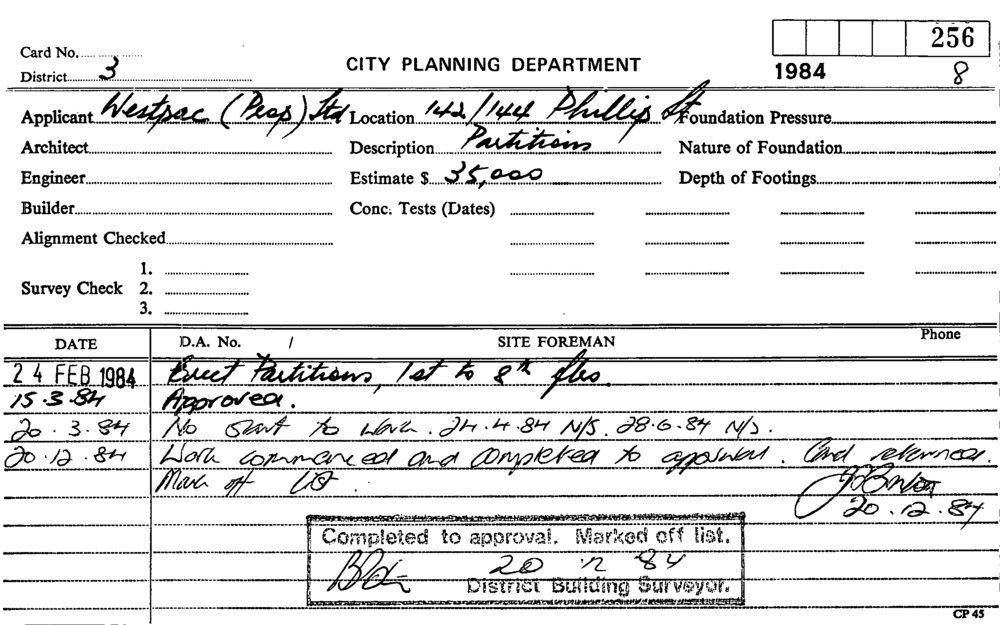 256
Card No.
District 3
CITY PLANNING DEPARTMENT
1984 8
Applicant Westpac (Prop) Ltd Location 142/144 Phillip St Foundation Pressure
Architect Description Partitions Nature of Foundation
Engineer Estimate $ 35,000 Depth of Footings
Builder Conc. Tests (Dates)
Alignment Checked
1.
Survey Check 2.
3.
DATE D.A. No. / SITE FOREMAN Phone
24 FEB 1984 Erect Partitions, 1st to 8th flrs.
15.3.84 Approved.
20.3.84 No start to work. 24.4.84 N/S. 28.6.84 N/S.
20.12.84 Work commenced and completed to approval. Card returned.
Mark off list.
20.12.84
Completed to approval. Marked off list.
20 12 84
District Building Surveyor.
CP 45